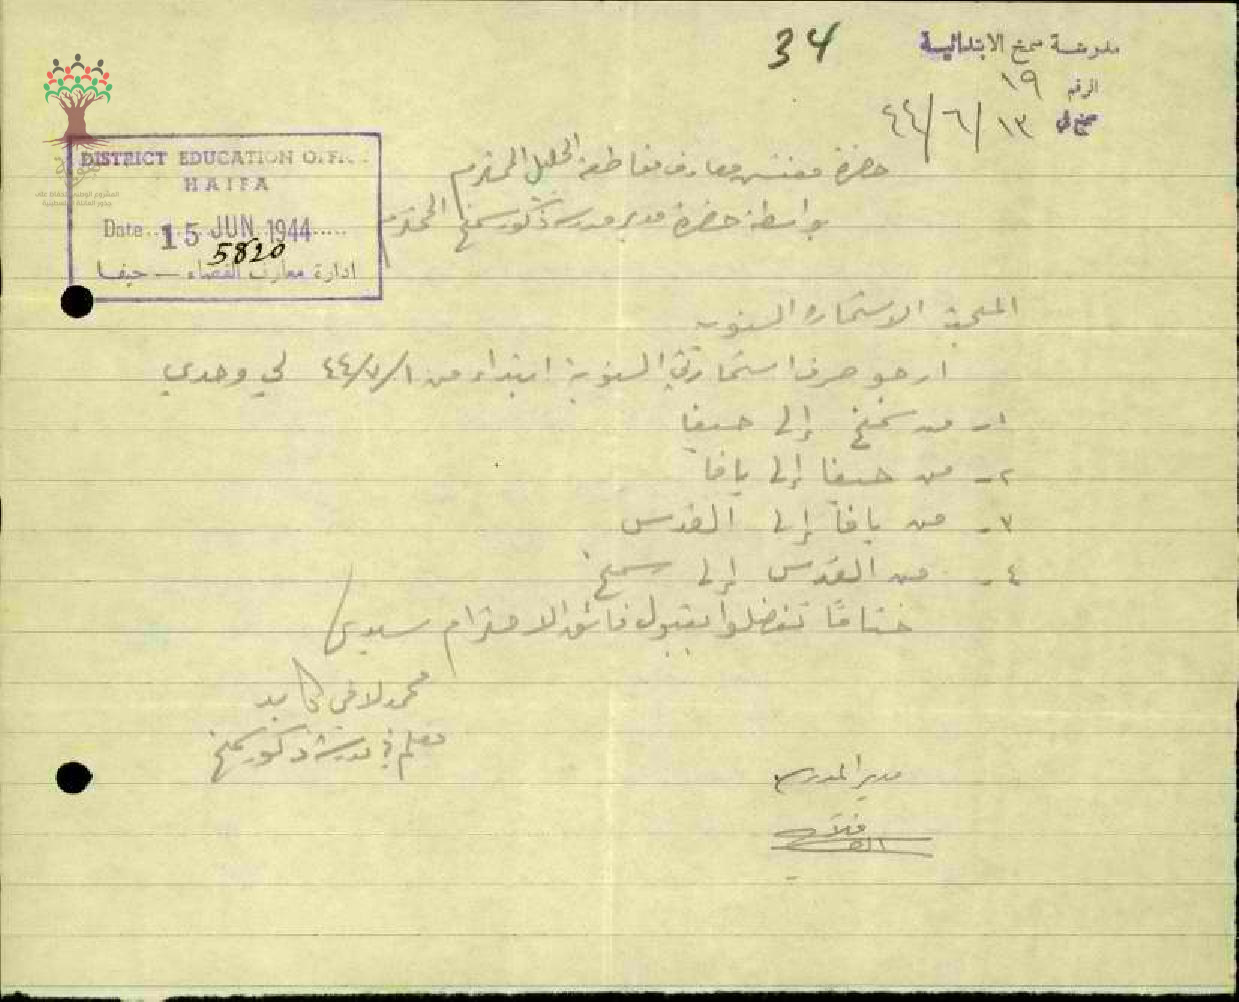 34
مدرسة سمخ الابتدائية
الرقم ١٩
سمخ في ١٣/٦/٤٤
حضرة مفتش معارف مقاطعة الجليل المحترم
بواسطة حضرة مدير مدرسة ذكور سمخ المحترم
DISTRICT EDUCATION OFFICE
HAIFA
Date 15 JUN 1944
5820
ادارة معارف القضاء — حيفا
الاستمارة السنوية
ارجو صرف استمارتي السنوية ابتداء من ١/٧/٤٤ لي وحدي
١- من سمخ إلى حيفا
٢- من حيفا إلى يافا
٣- من يافا إلى القدس
٤- من القدس إلى سمخ
ختاماً تفضلوا بقبول فائق الاحترام سيدي
محمد لافي
معلم في مدرسة ذكور سمخ
مدير المدرسة